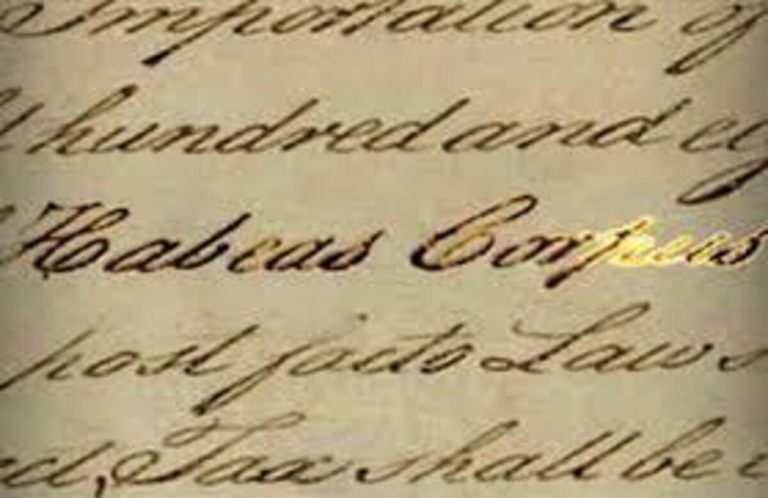 Importation of
hundred and eig
Habeas Corpus
post facto Law
ed, Tax shall be